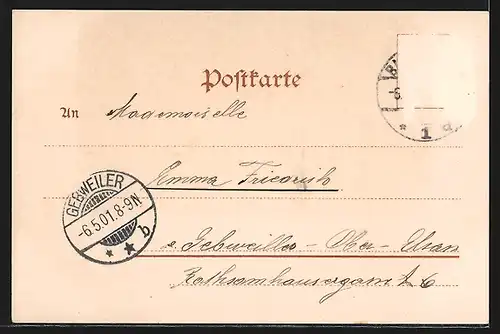 Postkarte
An Mademoiselle
Emma Friedrich
Gebweiler - Ober-Elsass
6
GEBWEILER
-6.5.01.8-9N
* * b
* 1 d